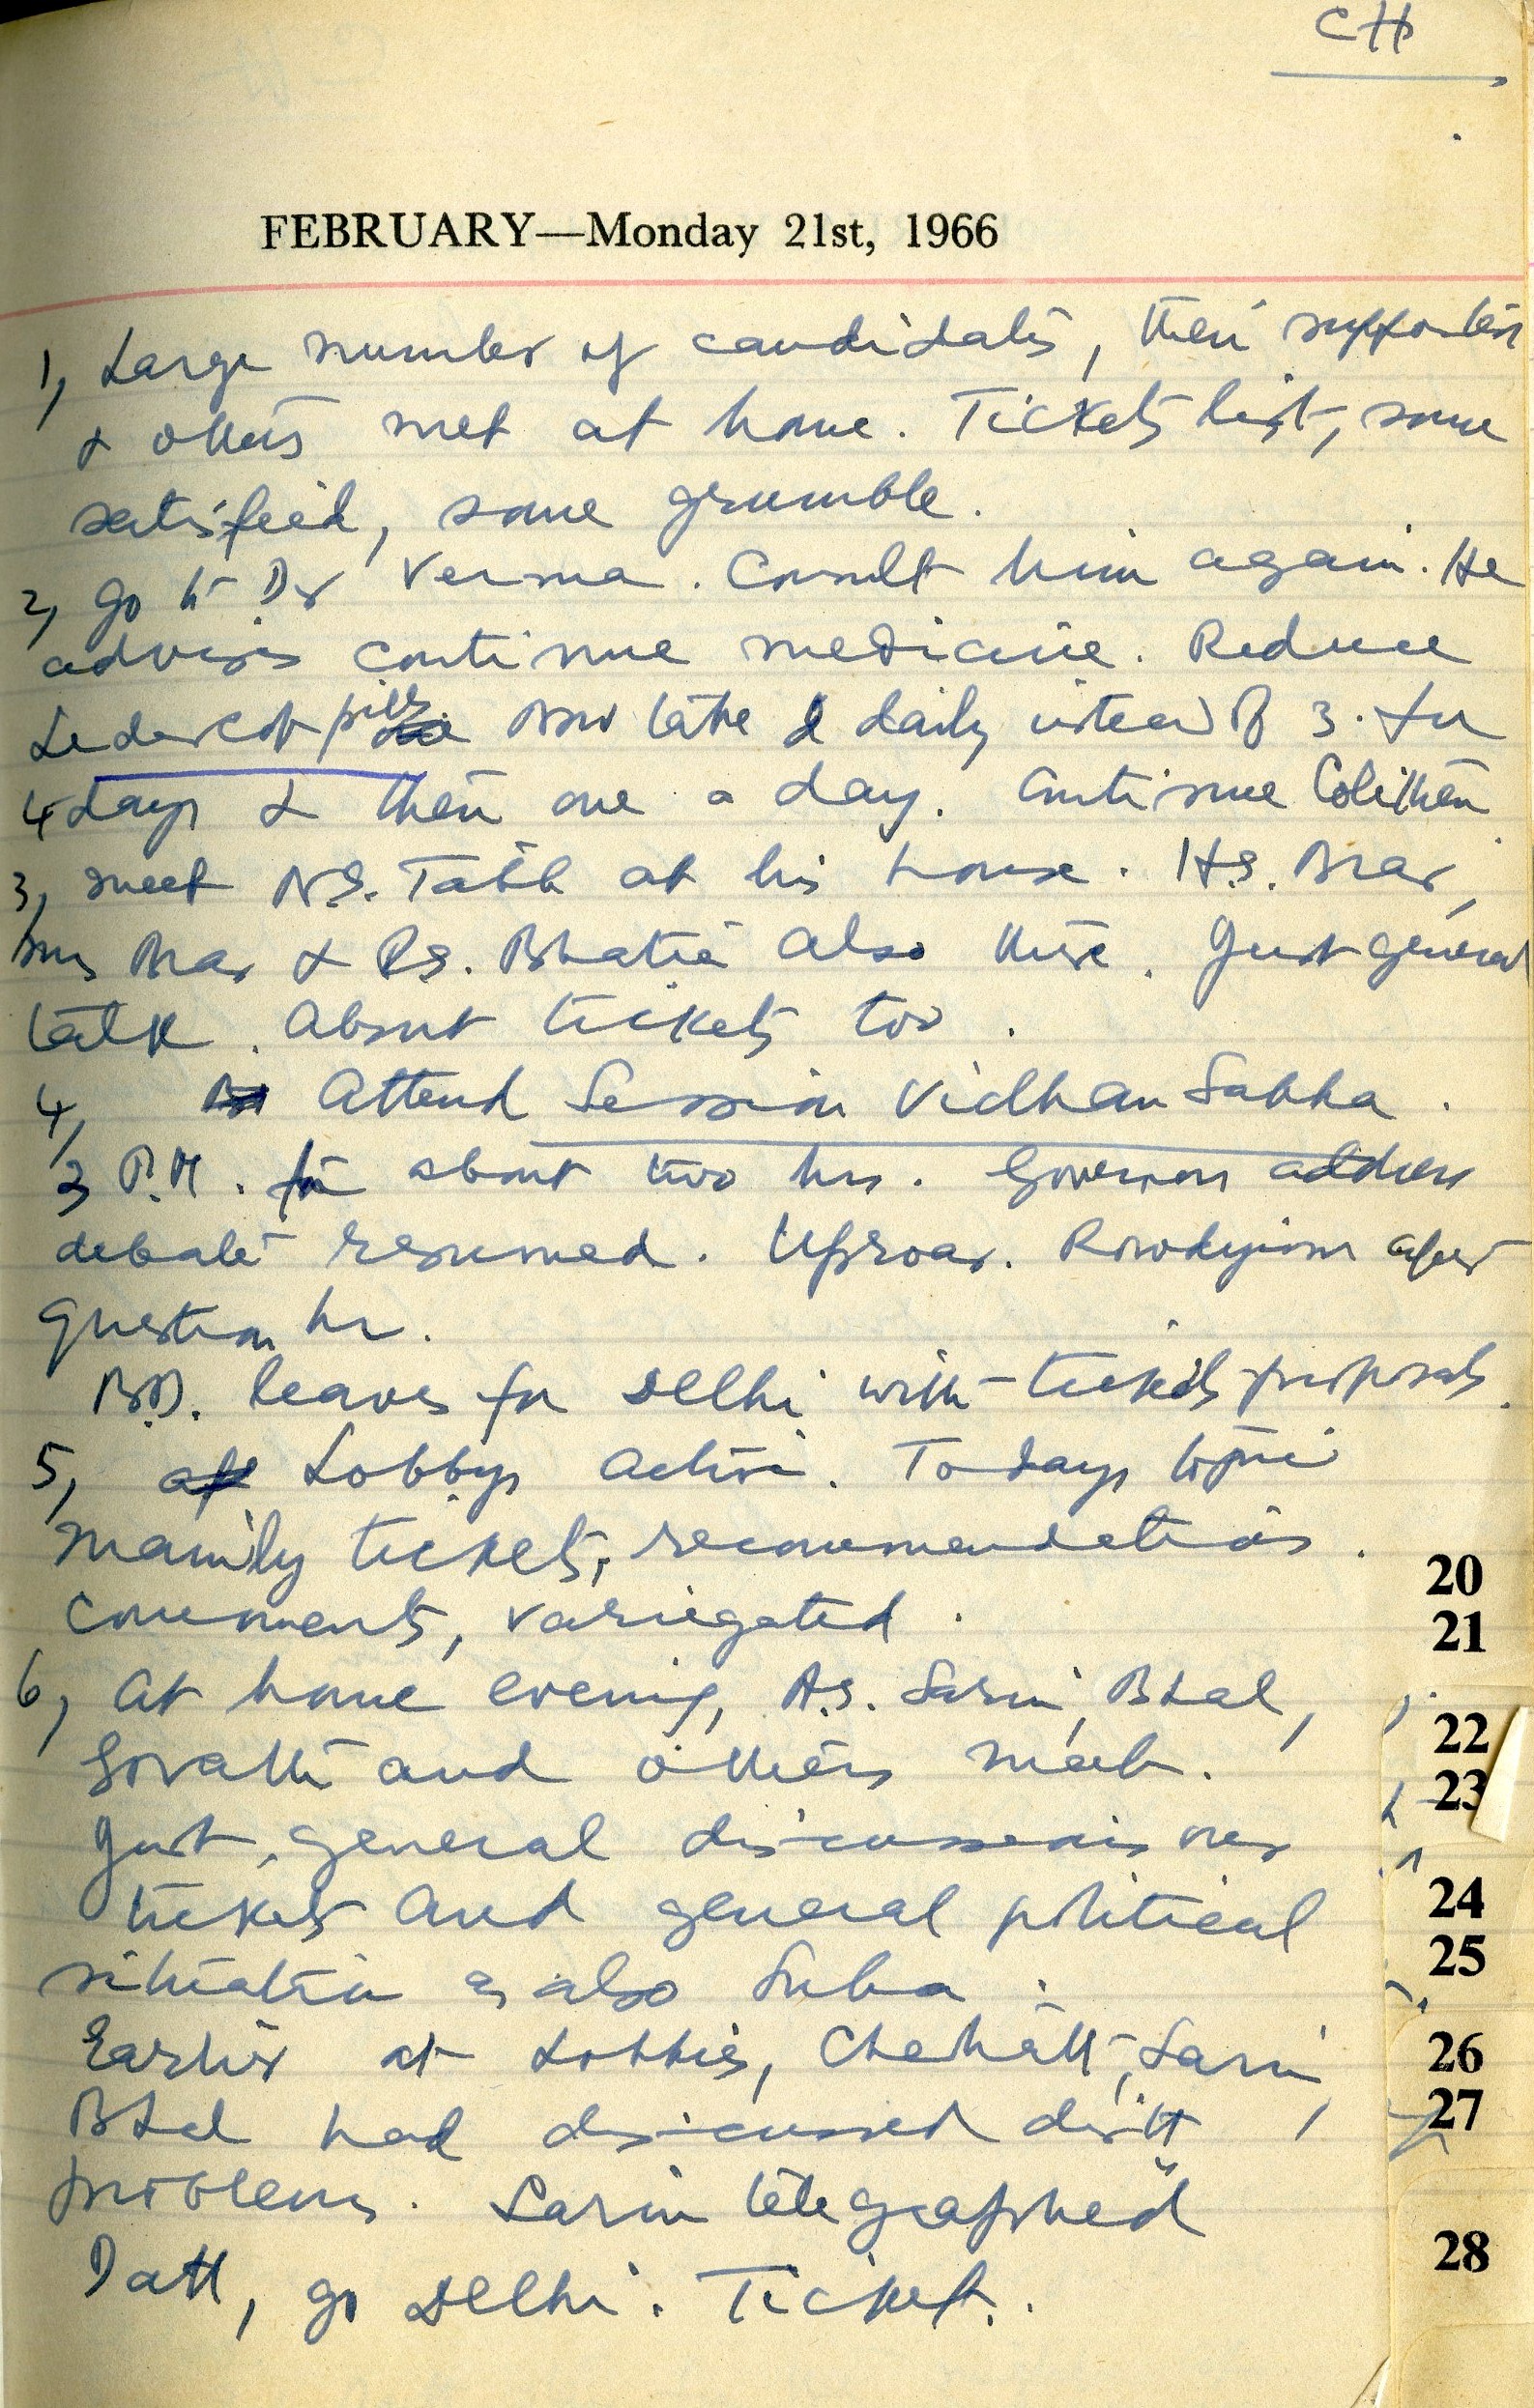 CH
FEBRUARY—Monday 21st, 1966
1, Large number of candidates, their supporters
& others met at home. Tickets list, some
satisfied, some grumble.
2, Go to Dr Verma. Consult him again. He
advises continue medicine. Reduce
Ledercot pills now take 2 daily instead of 3. for
4 days & then one a day. Continue
3, meet N.S. at his house. H.S. Brar,
Mrs Brar & P.S. Bhatia also there. Just general
talk. About tickets too.
4, Attend Session Vidhan Sabha.
3 P.M. for about two hrs. Governors address
debate resumed. Uproar. Rowdyism after
question hr.
B.D. leaves for Delhi with tickets proposals.
5, Lobbys active. Todays topic
mainly tickets, recommendations.
Comments, variegated.
6, At home evening, A.S. Sarin, Btal,
and others meet.
Just, general discussions over
tickets and general political
situation as also Suba.
Earlier at Lobbies, Sarin,
Btal had discussed distt
problems. Sarin telegraphed
Datt, go Delhi. Ticket.
20
21
22
23
24
25
26
27
28